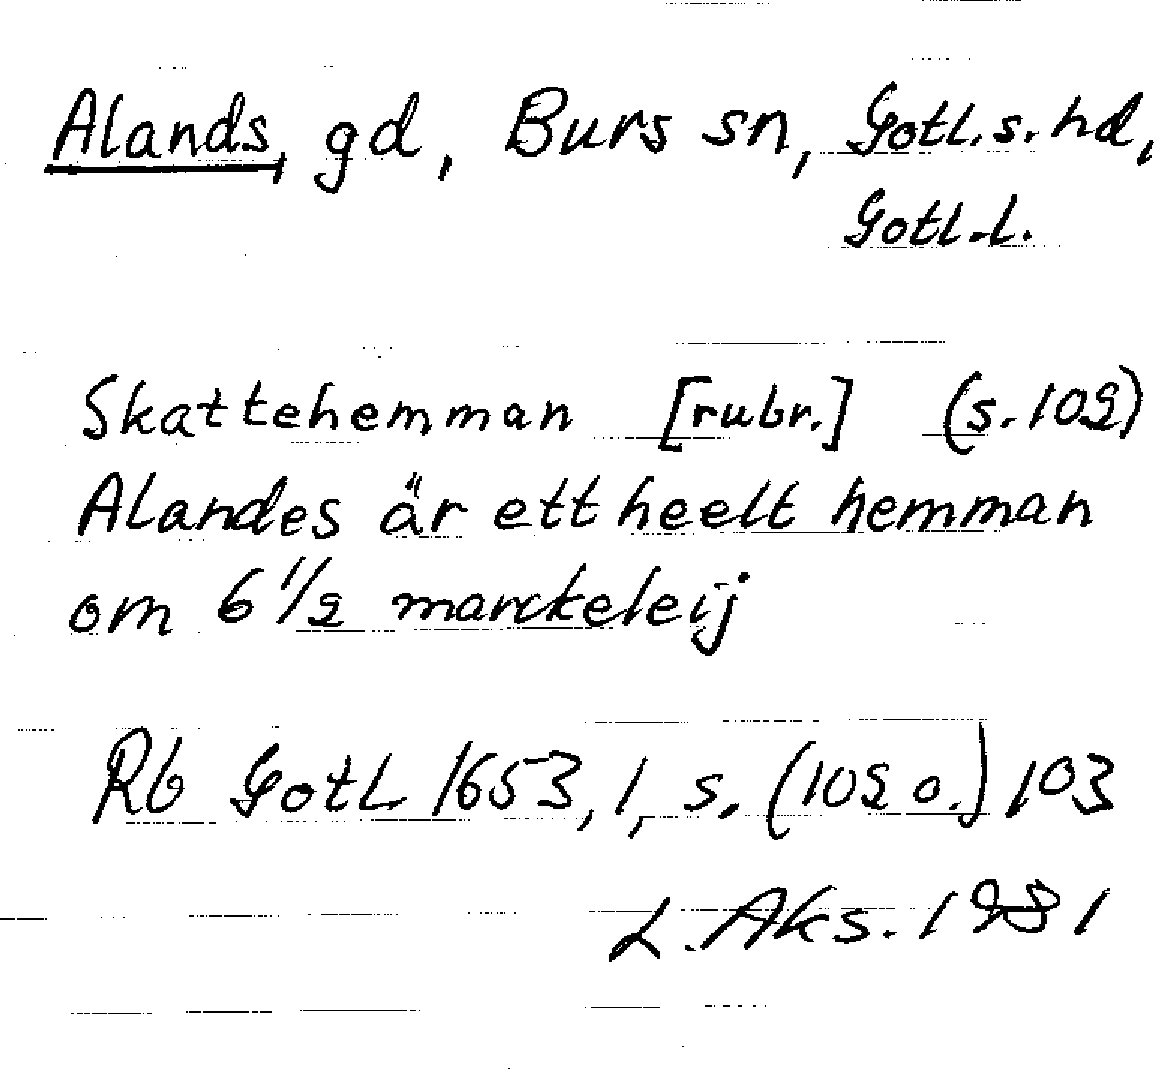 Alands, gd, Burs sn, Gotl. s. hd,
Gotl. l.
Skattehemman [rubr.] (s. 102)
Alandes är ett heelt hemman
om 6 1/2 marckeleij
Rb Gotl 1653, 1, s. (102 o.) 103
L. Aks. 1981